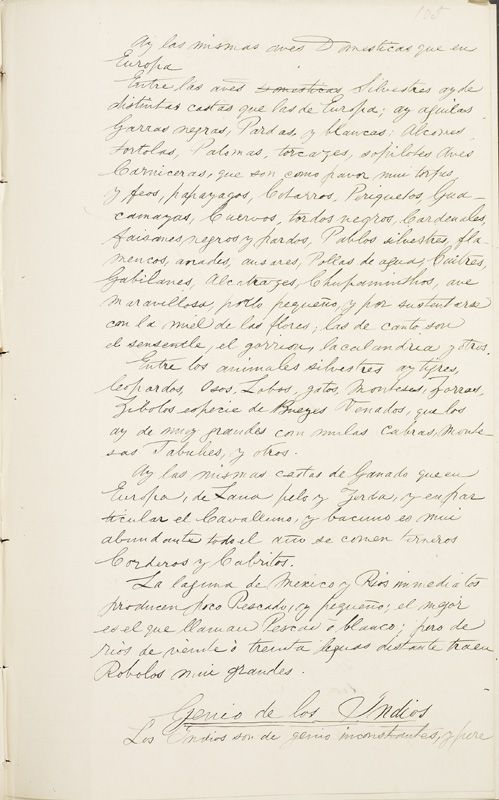 105
Ay las mismas aves Domesticas que en
Europa
Entre las aves domesticas Silvestres ay de
distintas castas que las de Europa; ay aguilas
Garras negras, Pardas, y blancas; Alcones,
Tortolas, Palomas, torcazes, sopilotes aves
Carniceras, que son como pavor mui torpes,
y feos, papagayos, Cotarros, Periquetos, Gua-
camayas, Cuervos, tordos negros, Cardenales,
faisanes negros y pardos, Pablos silvestres, fla-
mencos, anades, ansares, Pollas de agua, Buitres,
Gabilanes, Alcatrazes, Chupamirthos, ave
maravillosa, por lo pequeño, y por sustentarse
con la miel de las flores; las de canto son
el sensentle, el gorrion, la calandria y otros.
Entre los animales silvestres ay tigres,
leopardos, Osos, Lobos, gatos, Monteses, Zorras,
Zibolos especie de Bueyes Venados, que los
ay de muy grandes como mulas Cabras, Monte-
sas Tabulies, y otros.
Ay las mismas castas de Ganado que en
Europa, de Lana pelo y Zerda, y en par
ticular el Cavalluno, y bacuno es mui
abundante todo el año se comen terneros
Corderos y Cabritos.
La laguna de Mexico y Rios immediatos
producen poco Pescado, y pequeño; el mejor
es el que llaman Pescado blanco; pero de
rios de veinte o treinta leguas distante traen
Robolos mui grandes.
Genio de los Yndios
Los Yndios son de genio inconstantes, y pere